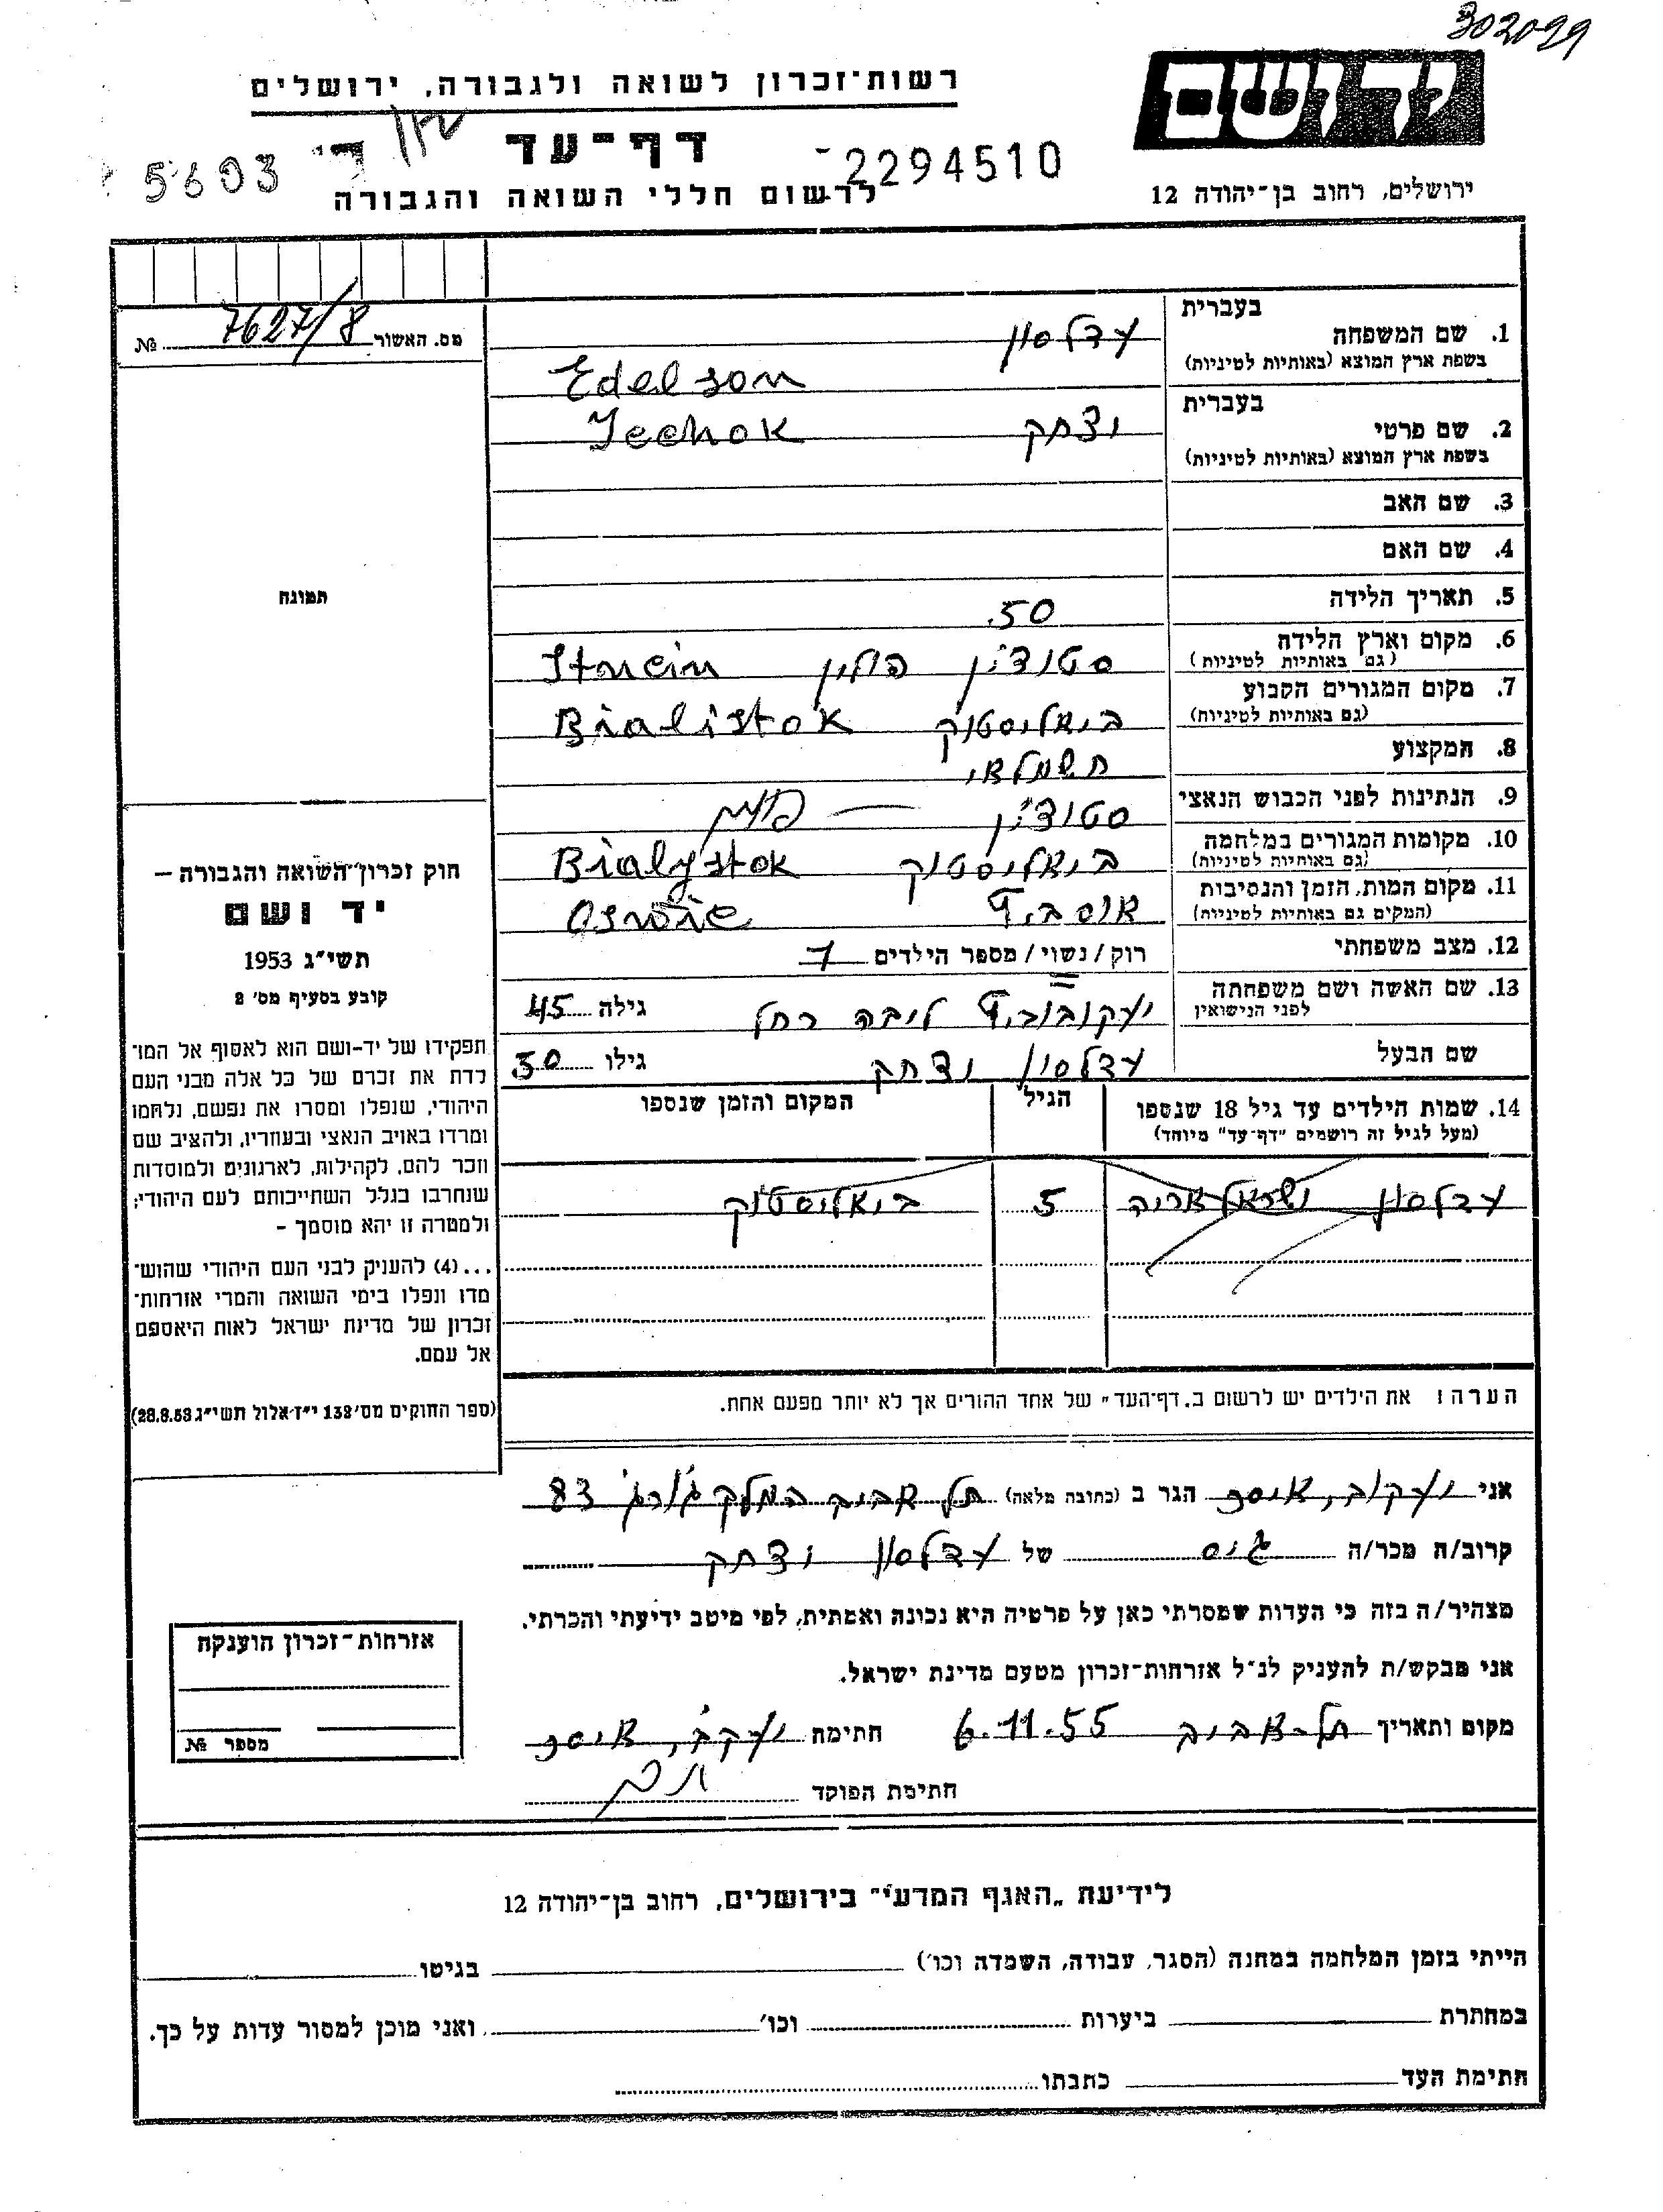 302099
יד ושם
ירושלים, רחוב בן־יהודה 12
רשות־זכרון לשואה ולגבורה, ירושלים
דף־עד
2294510
5603
לרשום חללי השואה והגבורה
מס. האשור 7627/8 №
תמונה
1. שם המשפחה בעברית עדלסון
בשפת ארץ המוצא (באותיות לטיניות) Edelson
2. שם פרטי בעברית יצחק
בשפת ארץ המוצא (באותיות לטיניות) Icchok
3. שם האב
4. שם האם
5. תאריך הלידה 50.
6. מקום וארץ הלידה
(גם באותיות לטיניות)
7. מקום המגורים הקבוע ביאליסטוק Bialistok
(גם באותיות לטיניות)
8. המקצוע חשמלאי
9. הנתינות לפני הכבוש הנאצי
10. מקומות המגורים במלחמה ביאליסטוק Bialystok
(גם באותיות לטיניות)
11. מקום המות, הזמן והנסיבות
(המקום גם באותיות לטיניות)
12. מצב משפחתי רוק / נשוי / מספר הילדים
13. שם האשה ושם משפחתה יעקובוביץ ליבה רחל גילה 45
לפני הנישואין
שם הבעל עדלסון יצחק גילו 50
14. שמות הילדים עד גיל 18 שנספו הגיל המקום והזמן שנספו
(מעל לגיל זה רושמים "דף־עד" מיוחד)
עדלסון ישראל אריה 5 ביאליסטוק
הערה: את הילדים יש לרשום ב„דף־העד" של אחד ההורים אך לא יותר מפעם אחת.
חוק זכרון־השואה והגבורה –
יד ושם
תשי"ג 1953
קובע בסעיף מס' 2
תפקידו של יד–ושם הוא לאסוף אל המו־
לדת את זכרם של כל אלה מבני העם
היהודי, שנפלו ומסרו את נפשם, נלחמו
ומרדו באויב הנאצי ובעוזריו, ולהציב שם
וזכר להם, לקהילות, לארגונים ולמוסדות
שנחרבו בגלל השתייכותם לעם היהודי;
ולמטרה זו יהא מוסמך –
...(4) להעניק לבני העם היהודי שהוש־
מדו ונפלו בימי השואה והמרי אזרחות־
זכרון של מדינת ישראל לאות היאספם
אל עמם.
(ספר החוקים מס' 132 י"ז אלול תשי"ג 28.8.53)
אני יעקובי, איסר הגר ב (כתובת מלאה) תל אביב המלך ג'ורג' 83
קרוב/ה מכר/ה גיס של עדלסון יצחק
מצהיר/ה בזה כי העדות שמסרתי כאן על פרטיה היא נכונה ואמתית, לפי מיטב ידיעתי והכרתי.
אני מבקש/ת להעניק לנ"ל אזרחות־זכרון מטעם מדינת ישראל.
מקום ותאריך תל-אביב 6.11.55 חתימת
חתימת הפוקד
אזרחות־זכרון הוענקה
מספר №
לידיעת „האגף המדעי" בירושלים, רחוב בן־יהודה 12
הייתי בזמן המלחמה במחנה (הסגר, עבודה, השמדה וכו') בגיטו
במחתרת ביערות וכו' ואני מוכן למסור עדות על כך.
חתימת העד כתבתו